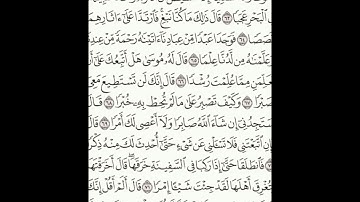 ٱلْبَحْرِ عَجَبًا ٦٣ قَالَ ذَٰلِكَ مَا كُنَّا نَبْغِ فَٱرْتَدَّا عَلَىٰٓ ءَاثَارِهِمَا
قَصَصًا ٦٤ فَوَجَدَا عَبْدًا مِّنْ عِبَادِنَآ ءَاتَيْنَٰهُ رَحْمَةً مِّنْ عِندِنَا
وَعَلَّمْنَٰهُ مِن لَّدُنَّا عِلْمًا ٦٥ قَالَ لَهُۥ مُوسَىٰ هَلْ أَتَّبِعُكَ عَلَىٰٓ
تُعَلِّمَنِ مِمَّا عُلِّمْتَ رُشْدًا ٦٦ قَالَ إِنَّكَ لَن تَسْتَطِيعَ مَعِىَ
صَبْرًا ٦٧ وَكَيْفَ تَصْبِرُ عَلَىٰ مَا لَمْ تُحِطْ بِهِۦ خُبْرًا ٦٨ قَالَ
سَتَجِدُنِىٓ إِن شَآءَ ٱللَّهُ صَابِرًا وَلَآ أَعْصِى لَكَ أَمْرًا ٦٩ قَالَ
فَإِنِ ٱتَّبَعْتَنِى فَلَا تَسْـَٔلْنِى عَن شَىْءٍ حَتَّىٰٓ أُحْدِثَ لَكَ مِنْهُ ذِكْرًا
فَٱنطَلَقَا حَتَّىٰٓ إِذَا رَكِبَا فِى ٱلسَّفِينَةِ خَرَقَهَا قَالَ أَخَرَقْتَهَا
لِتُغْرِقَ أَهْلَهَا لَقَدْ جِئْتَ شَيْـًٔا إِمْرًا ٧١ قَالَ أَلَمْ أَقُلْ إِنَّكَ